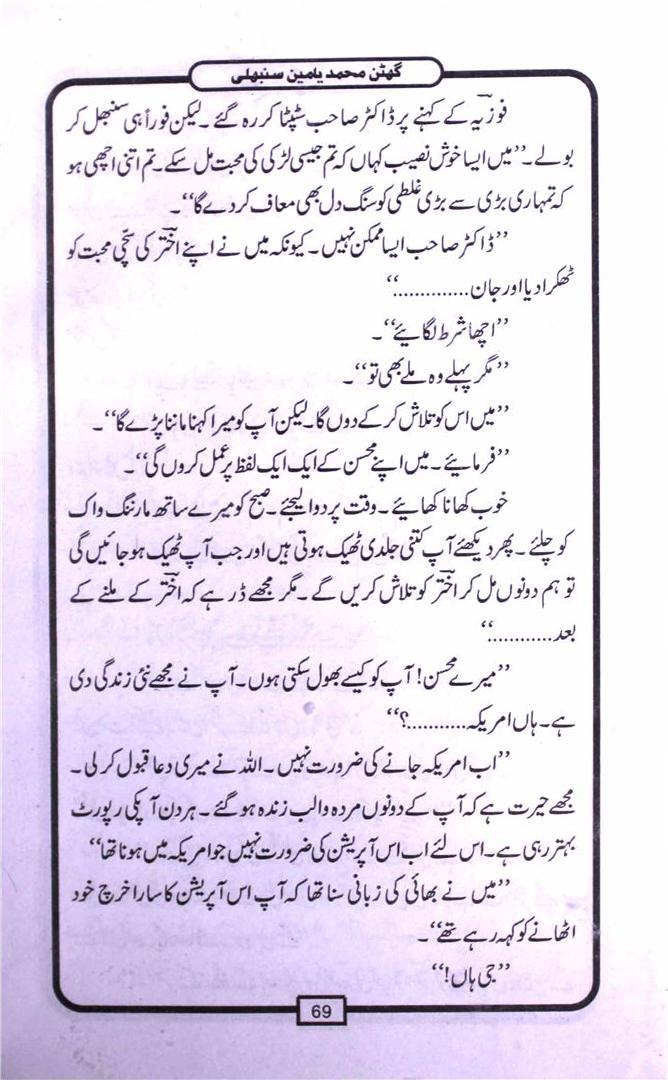 گھٹن محمد یامین سنبھلی
فوزیہ کے کہنے پر ڈاکٹر صاحب سٹپٹا کر رہ گئے۔ لیکن فوراً ہی سنبھل کر
بولے۔ ’’میں ایسا خوش نصیب کہاں کہ تم جیسی لڑکی کی محبت مل سکے۔ تم اتنی اچھی ہو
کہ تمہاری بڑی سے بڑی غلطی کو سنگ دل بھی معاف کر دے گا‘‘۔
’’ڈاکٹر صاحب ایسا ممکن نہیں۔ کیونکہ میں نے اپنے اخترؔ کی سچّی محبت کو
ٹھکرا دیا اور جان ............‘‘
’’اچھا شرط لگائیے‘‘۔
’’مگر پہلے وہ ملے بھی تو‘‘۔
’’میں اس کو تلاش کر کے دوں گا۔ لیکن آپ کو میرا کہنا ماننا پڑے گا‘‘۔
’’فرمائیے۔ میں اپنے محسن کے ایک ایک لفظ پر عمل کروں گی‘‘۔
خوب کھانا کھائیے۔ وقت پر دوا لیجئے۔ صبح کو میرے ساتھ مارننگ واک
کو چلئے۔ پھر دیکھئے آپ کتنی جلدی ٹھیک ہوتی ہیں اور جب آپ ٹھیک ہو جائیں گی
تو ہم دونوں مل کر اخترؔ کو تلاش کریں گے۔ مگر مجھے ڈر ہے کہ اخترؔ کے ملنے کے
بعد ............‘‘
’’میرے محسن! آپ کو کیسے بھول سکتی ہوں۔ آپ نے مجھے نئی زندگی دی
ہے۔ ہاں امریکہ ...........؟‘‘
’’اب امریکہ جانے کی ضرورت نہیں۔ اللہ نے میری دعا قبول کر لی۔
مجھے حیرت ہے کہ آپ کے دونوں مردہ والب زندہ ہو گئے۔ ہر دن آپکی رپورٹ
بہتر رہی ہے۔ اس لئے اب اس آپریشن کی ضرورت نہیں جو امریکہ میں ہونا تھا‘‘
’’میں نے بھائی کی زبانی سنا تھا کہ آپ اس آپریشن کا سارا خرچ خود
اٹھانے کو کہہ رہے تھے‘‘۔
’’جی ہاں!‘‘
69